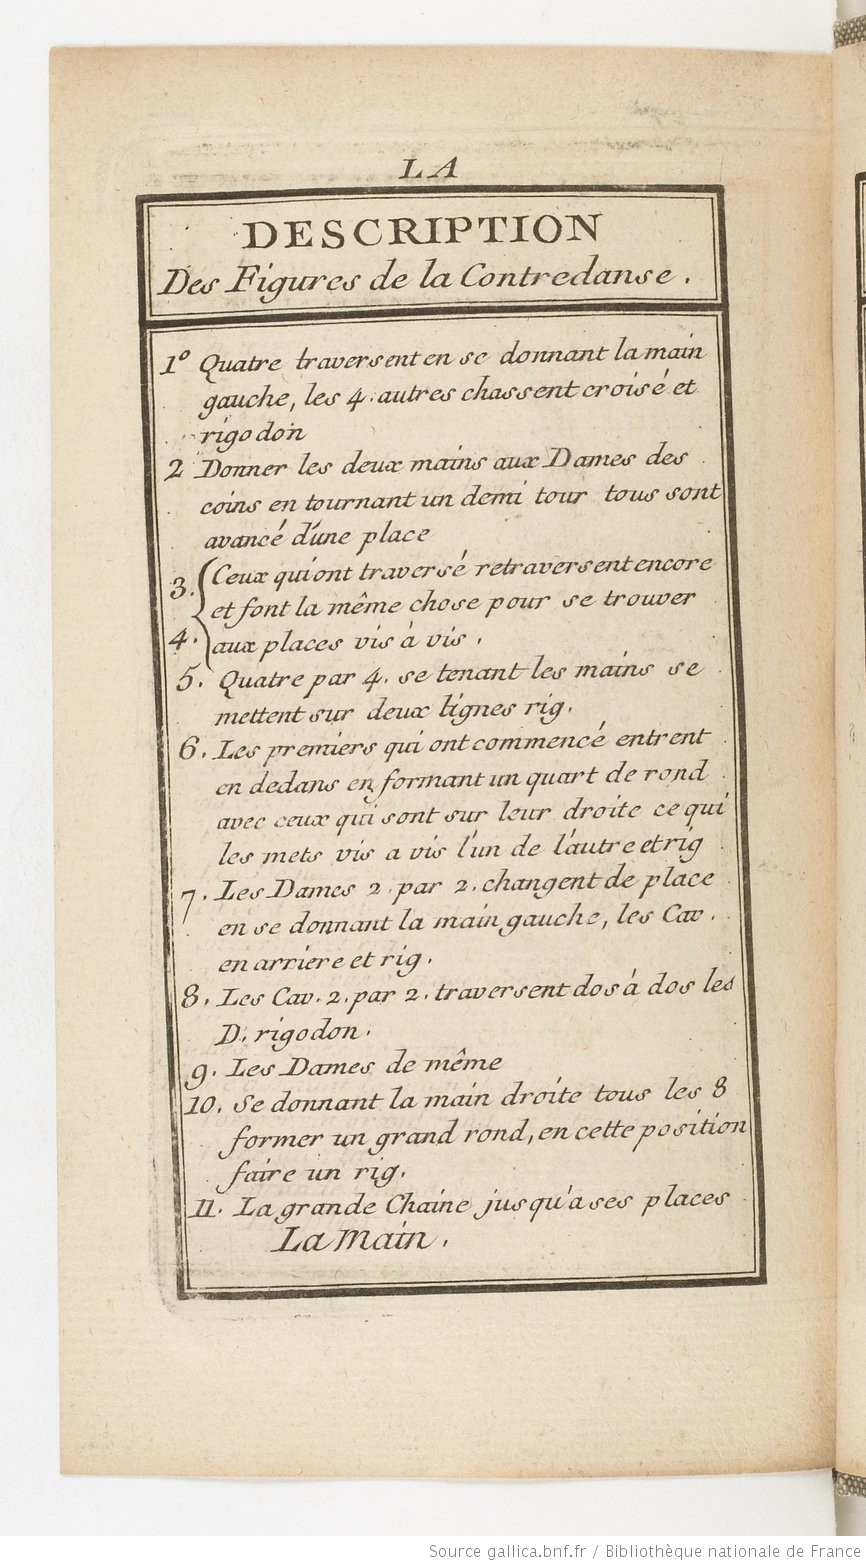 LA
DESCRIPTION
Des Figures de la Contredanse.
1º Quatre traversent en se donnant la main
gauche, les 4. autres chassent croisé et
rigodon
2 Donner les deux mains aux Dames des
coins en tournant un demi tour tous sont
avancé d'une place
3. Ceux qui ont traversé retraversent encore
et font la même chose pour se trouver
4. aux places vis à vis.
5. Quatre par 4. se tenant les mains se
mettent sur deux lignes rig.
6. Les premiers qui ont commencé entrent
en dedans en formant un quart de rond
avec ceux qui sont sur leur droite ce qui
les mets vis a vis l'un de l'autre et rig
7. Les Dames 2. par 2. changent de place
en se donnant la main gauche, les Cav.
en arriere et rig.
8. Les Cav. 2. par 2. traversent dos à dos les
D. rigodon.
9. Les Dames de même
10. Se donnant la main droite tous les 8
former un grand rond, en cette position
faire un rig.
11. La grande Chaine jusqu'a ses places
La Main.
Source gallica.bnf.fr / Bibliothèque nationale de France